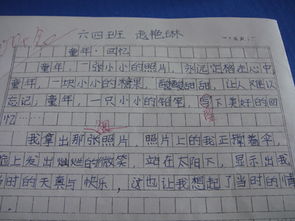 六四班
童年·回忆
童年,一张小小的照片,永远
心中
童年,一块小小的糖果,让人
忘记,童年,一只小小的
写下美好的回
忆……
我拿出那张照片,照片上的我正撑着伞,
脸上发出灿烂的微笑 站在太阳下,显示出我
当时的天真与快乐,这也让我想起了当时的情